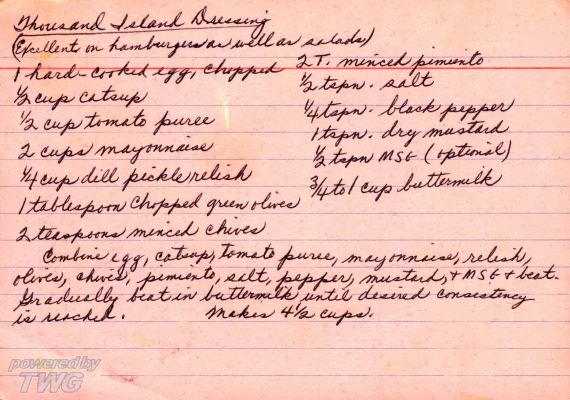 Thousand Island Dressing
(Excellent on hamburgers as well as salads)
1 hard-cooked egg, chopped
½ cup catsup
½ cup tomato puree
2 cups mayonnaise
¼ cup dill pickle relish
1 tablespoon chopped green olives
2 teaspoons minced chives
2 T. minced pimiento
½ tspn. salt
¼ tspn. black pepper
1 tspn. dry mustard
½ tspn MSG (optional)
¾ to 1 cup buttermilk
Combine egg, catsup, tomato puree, mayonnaise, relish,
olives, chives, pimento, salt, pepper, mustard, + MSG + beat.
Gradually beat in buttermilk until desired consistency
is reached. Makes 4½ cups.
powered by
TWG